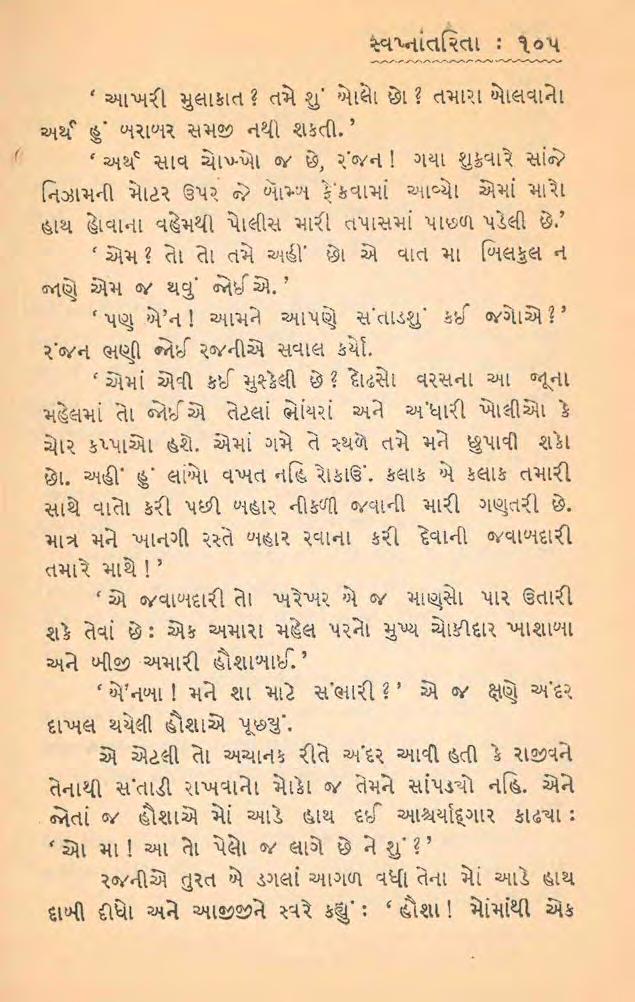 સ્વપ્નાંતરિતા : ૧૦૫
‘ આખરી મુલાકાત ? તમે શું બોલો છો ? તમારા બોલવાનો
અર્થ હું બરાબર સમજી નથી શકતી. ’
‘ અર્થ સાવ ચોખ્ખો જ છે, રંજન ! ગયા શુક્રવારે સાંજે
નિઝામની મોટર ઉપર જે બોમ્બ ફેંકવામાં આવ્યો એમાં મારો
હાથ હોવાના વહેમથી પોલીસ મારી તપાસમાં પાછળ પડેલી છે.’
‘ એમ ? તો તો તમે અહીં છો એ વાત મા બિલકુલ ન
જાણે એમ જ થવું જોઈએ. ’
‘ પણ બે’ન ! આમને આપણે સંતાડશું કઈ જગોએ ? ’
રંજન ભણી જોઈ રજનીએ સવાલ કર્યો.
‘ એમાં એવી કઈ મુસ્કેલી છે ? દોઢસો વરસના આ જૂના
મહેલમાં તો જોઈએ તેટલાં ભોંયરાં અને અંધારી ખોલીઓ કે
ચોર કપ્પાઓ હશે. એમાં ગમે તે સ્થળે તમે મને છુપાવી શકો
છો. અહીં હું લાંબો વખત નહિ રોકાઉં. કલાક બે કલાક તમારી
સાથે વાતો કરી પછી બહાર નીકળી જવાની મારી ગણતરી છે.
માત્ર મને ખાનગી રસ્તે બહાર રવાના કરી દેવાની જવાબદારી
તમારે માથે ! ’
‘ એ જવાબદારી તો ખરેખર બે જ માણસો પાર ઉતારી
શકે તેવાં છે : એક અમારા મહેલ પરનો મુખ્ય ચોકીદાર ખાશાબા
અને બીજી અમારી હૌશાબાઈ. ’
‘ બે’નબા ! મને શા માટે સંભારી ? ’ એ જ ક્ષણે અંદર
દાખલ થયેલી હૌશાએ પૂછ્યું.
એ એટલી તો અચાનક રીતે અંદર આવી હતી કે રાજીવને
તેનાથી સંતાડી રાખવાનો મોકો જ તેમને સાંપડ્યો નહિ. એને
જોતાં જ હૌશાએ મોં આડે હાથ દઈ આશ્ચર્યોદ્ગાર કાઢ્યા :
‘ ઓ મા ! આ તો પેલો જ લાગે છે ને શું ? ’
રજનીએ તુરત બે ડગલાં આગળ વધી તેના મોં આડે હાથ
દાબી દીધો અને આજીજીને સ્વરે કહ્યું : ‘ હૌશા ! મોંમાંથી એક